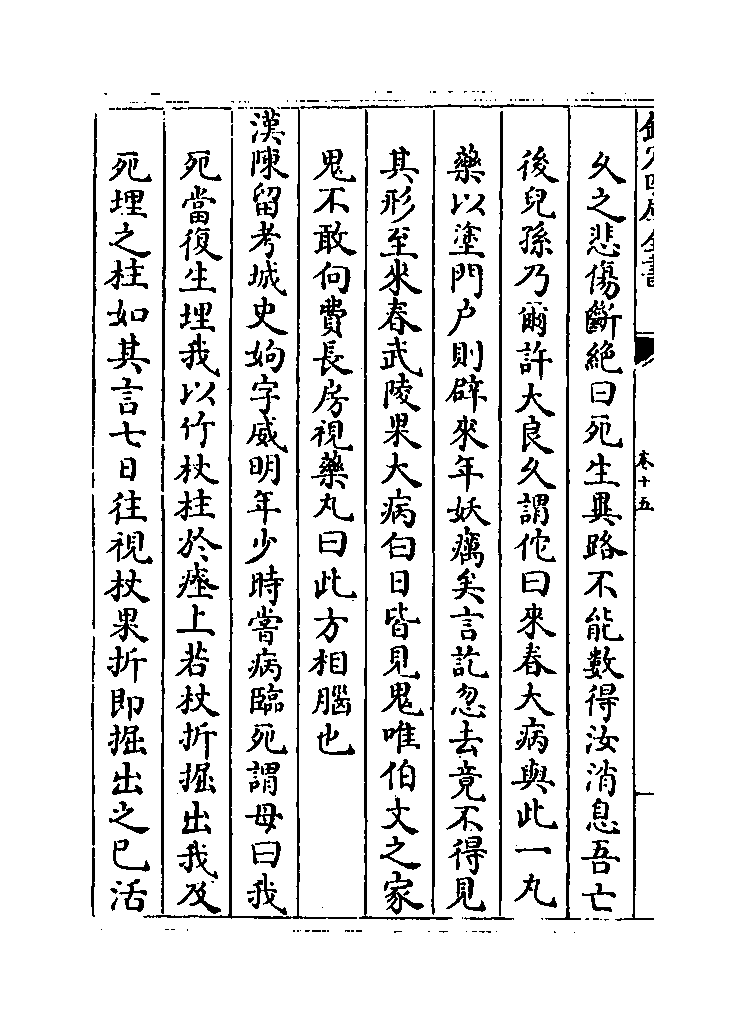 欽定四庫全書
卷十五
久之悲傷斷絶曰死生異路不能數得汝消息吾亡
後兒孫乃爾許大良久謂佗曰來春大病與此一丸
藥以塗門户則辟來年妖癘矣言訖忽去竟不得見
其形至來春武陵果大病白日皆見鬼唯伯文之家
鬼不敢向費長房視藥丸曰此方相腦也
漢陳留考城史姁字威明年少時嘗病臨死謂母曰我
死當復生埋我以竹杖柱於瘞上若杖折掘出我及
死埋之柱如其言七日往視杖果折即掘出之已活